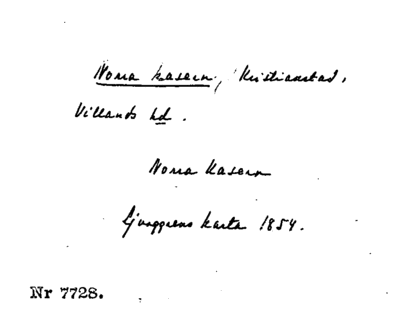 Norra kasern, Kristianstad,
Villands hd.
Norra Kasern
Ljunggrens karta 1854.
Nr 7728.